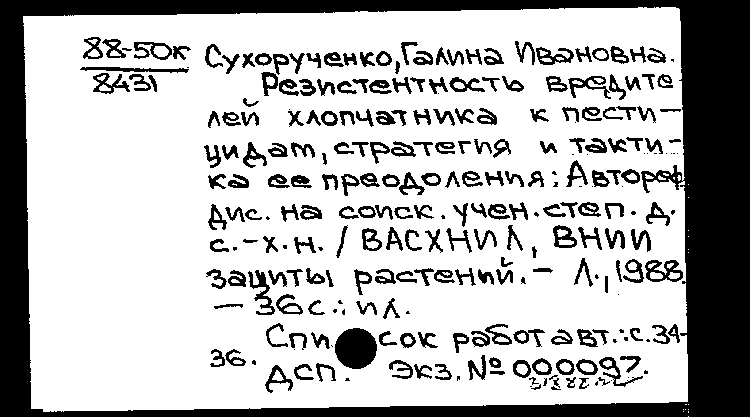 88-50к
8431
Сухорученко, Галина Ивановна.
Резистентность вредите
лей хлопчатника к пести-
цидам, стратегия и такти-
ка ее преодоления: Автореф
дис. на соиск. учен. степ. д.
с.-х.н. / ВАСХНИЛ, ВНИИ
защиты растений. - Л., 1988.
- 36 с.: ил.
Список работ авт.: с. 34-
36.
ДСП. Экз. № 000097.